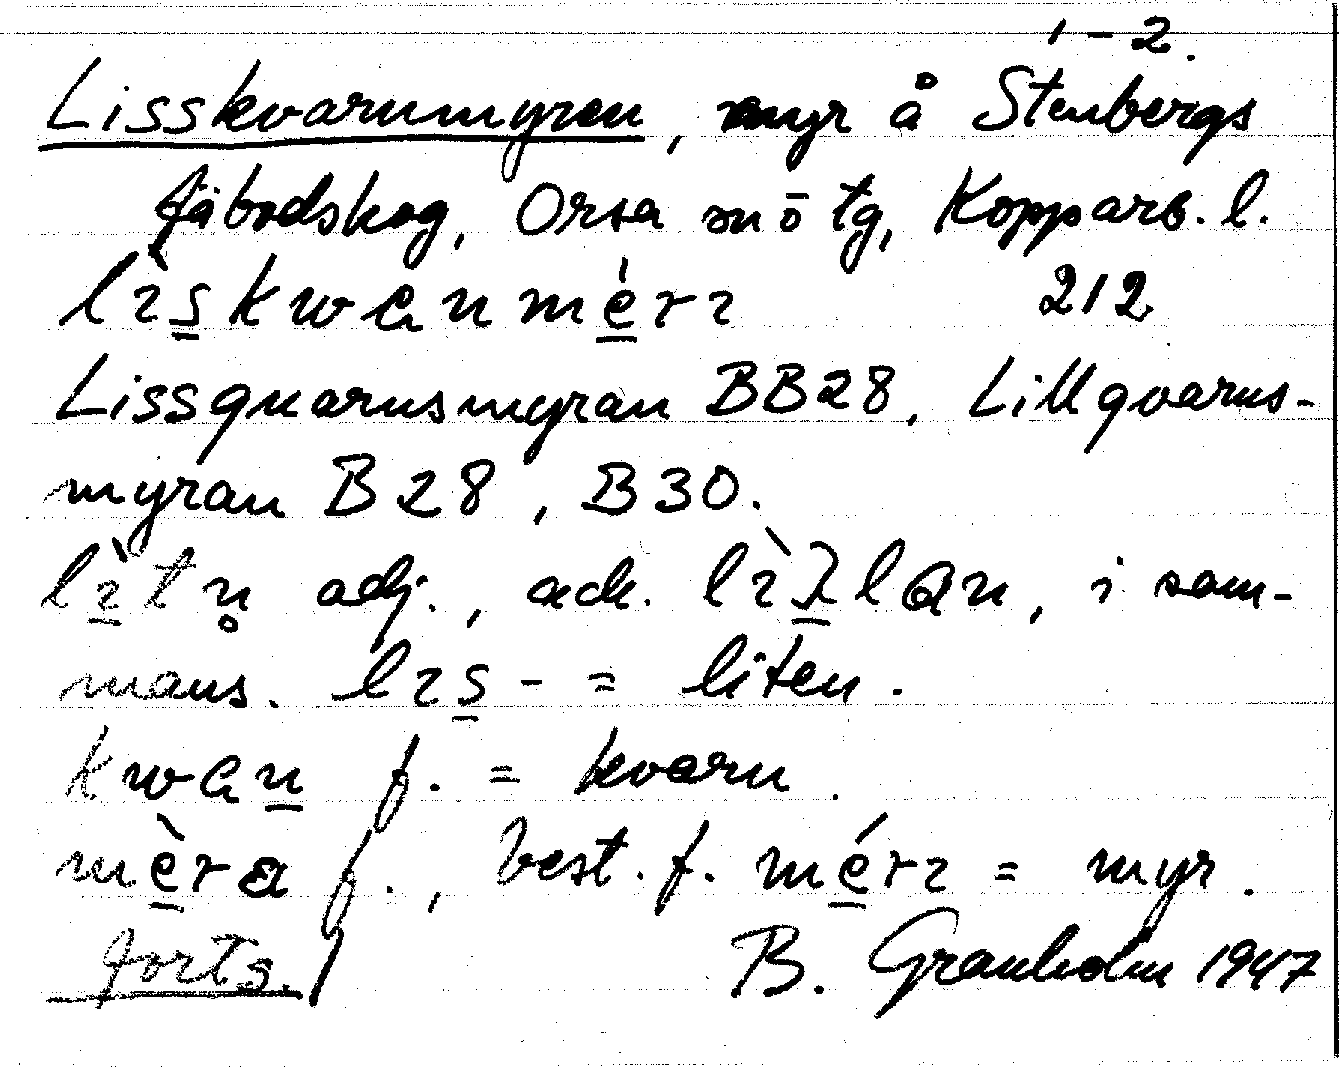 1-2.
Lisskvarnmyren, myr å Stenbergs
fäbodskog, Orsa sn ö tg, Kopparb. l.
lìskwanméri 212
Lissquarnsmyran BB28, Lillqvarns-
myran B28, B30.
lìtn̥ adj., ack. lìλlan, i sam-
mans. lis- = liten.
kwan f. = kvarn.
mèra f., best. f. méri = myr.
forts./ B. Granholm 1947